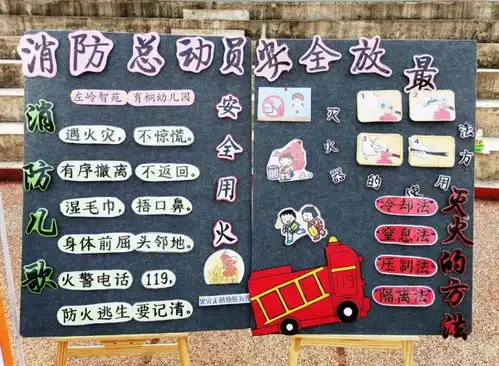 消防总动员安全放最
左岭智苑 育桐幼儿园
消防儿歌
遇火灾，不惊慌。
有序撤离 不返回。
湿毛巾，捂口鼻。
身体前屈 头邻地。
火警电话 119,
防火逃生 要记清。
安全用火
灭火器的使用方法
1
2
3
4
灭火的方法
冷却法
窒息法
压制法
隔离法